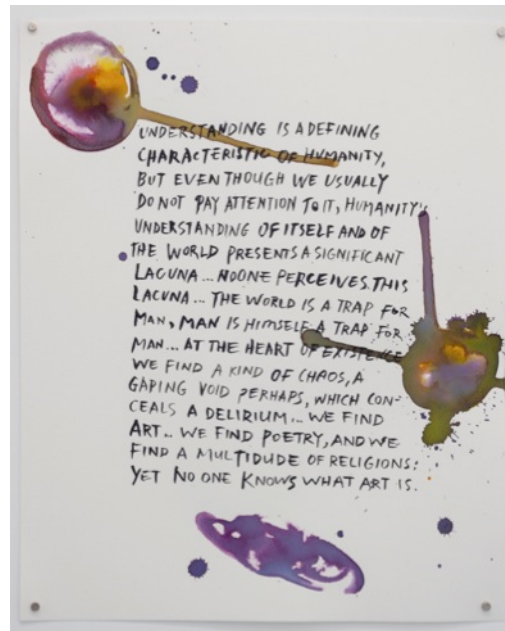 UNDERSTANDING IS A DEFINING
CHARACTERISTIC OF HUMANITY,
BUT EVEN THOUGH WE USUALLY
DO NOT PAY ATTENTION TO IT, HUMANITY'S
UNDERSTANDING OF ITSELF AND OF
THE WORLD PRESENTS A SIGNIFICANT
LACUNA... NO ONE PERCEIVES THIS
LACUNA... THE WORLD IS A TRAP FOR
MAN, MAN IS HIMSELF A TRAP FOR
MAN... AT THE HEART OF EXISTENCE
WE FIND A KIND OF CHAOS, A
GAPING VOID PERHAPS, WHICH CON-
CEALS A DELIRIUM... WE FIND
ART.. WE FIND POETRY, AND WE
FIND A MULTIDUDE OF RELIGIONS:
YET NO ONE KNOWS WHAT ART IS.